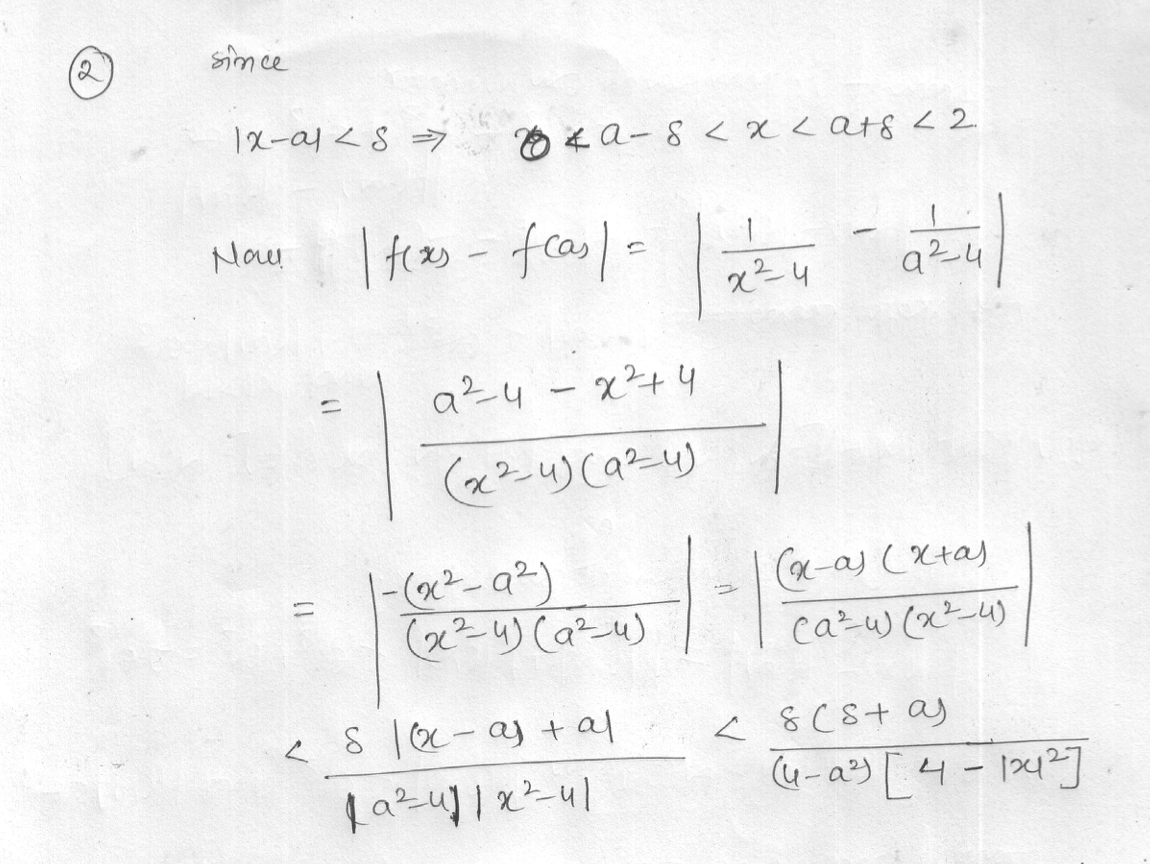 ② since
|x-a| < δ ⇒ a-δ < x < a+δ < 2
Now |f(x) - f(a)| = | 1/(x²-4) - 1/(a²-4) |
= | (a²-4 - x²+4) / ((x²-4)(a²-4)) |
= | -(x²-a²) / ((x²-4)(a²-4)) | = | (x-a)(x+a) / ((a²-4)(x²-4)) |
< δ |(x-a) + a| / (|a²-4| |x²-4|) < δ(δ+a) / ((4-a²)[4-|x|²])